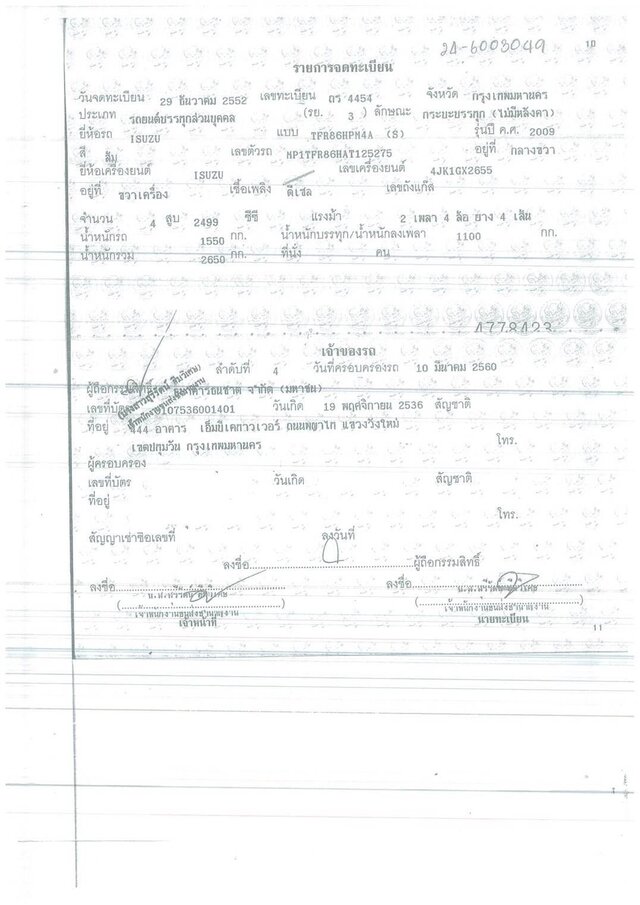 2A-6003049
10
รายการจดทะเบียน
วันจดทะเบียน 29 ธันวาคม 2552 เลขทะเบียน ถร 4454 จังหวัด กรุงเทพมหานคร
ประเภท รถยนต์บรรทุกส่วนบุคคล (รย. 3 ) ลักษณะ กระบะบรรทุก (ไม่มีหลังคา)
ยี่ห้อรถ ISUZU แบบ TFR86HPM4A (S) รุ่นปี ค.ศ. 2009
สี ส้ม เลขตัวรถ MP1TFR86HAT125275 อยู่ที่ กลางขวา
ยี่ห้อเครื่องยนต์ ISUZU เลขเครื่องยนต์ 4JK1GX2655
อยู่ที่ ขวาเครื่อง เชื้อเพลิง ดีเซล เลขถังแก๊ส
จำนวน 4 สูบ 2499 ซีซี แรงม้า 2 เพลา 4 ล้อ ยาง 4 เส้น
น้ำหนักรถ 1550 กก. น้ำหนักบรรทุก/น้ำหนักลงเพลา 1100 กก.
น้ำหนักรวม 2650 กก. ที่นั่ง คน
4778423
เจ้าของรถ
ลำดับที่ 4 วันที่ครอบครองรถ 10 มีนาคม 2560
ผู้ถือกรรมสิทธิ์ ธนาคารธนชาต จำกัด (มหาชน)
เลขที่บัตร 107536001401 วันเกิด 19 พฤศจิกายน 2536 สัญชาติ
ที่อยู่ 444 อาคาร เอ็มบีเคทาวเวอร์ ถนนพญาไท แขวงวังใหม่
เขตปทุมวัน กรุงเทพมหานคร โทร.
ผู้ครอบครอง
เลขที่บัตร วันเกิด สัญชาติ
ที่อยู่
โทร.
สัญญาเช่าซื้อเลขที่ ลงวันที่
ลงชื่อ ผู้ถือกรรมสิทธิ์
ลงชื่อ ลงชื่อ
เจ้าพนักงานขนส่งชำนาญงาน เจ้าพนักงานขนส่งชำนาญงาน
เจ้าหน้าที่ นายทะเบียน
11